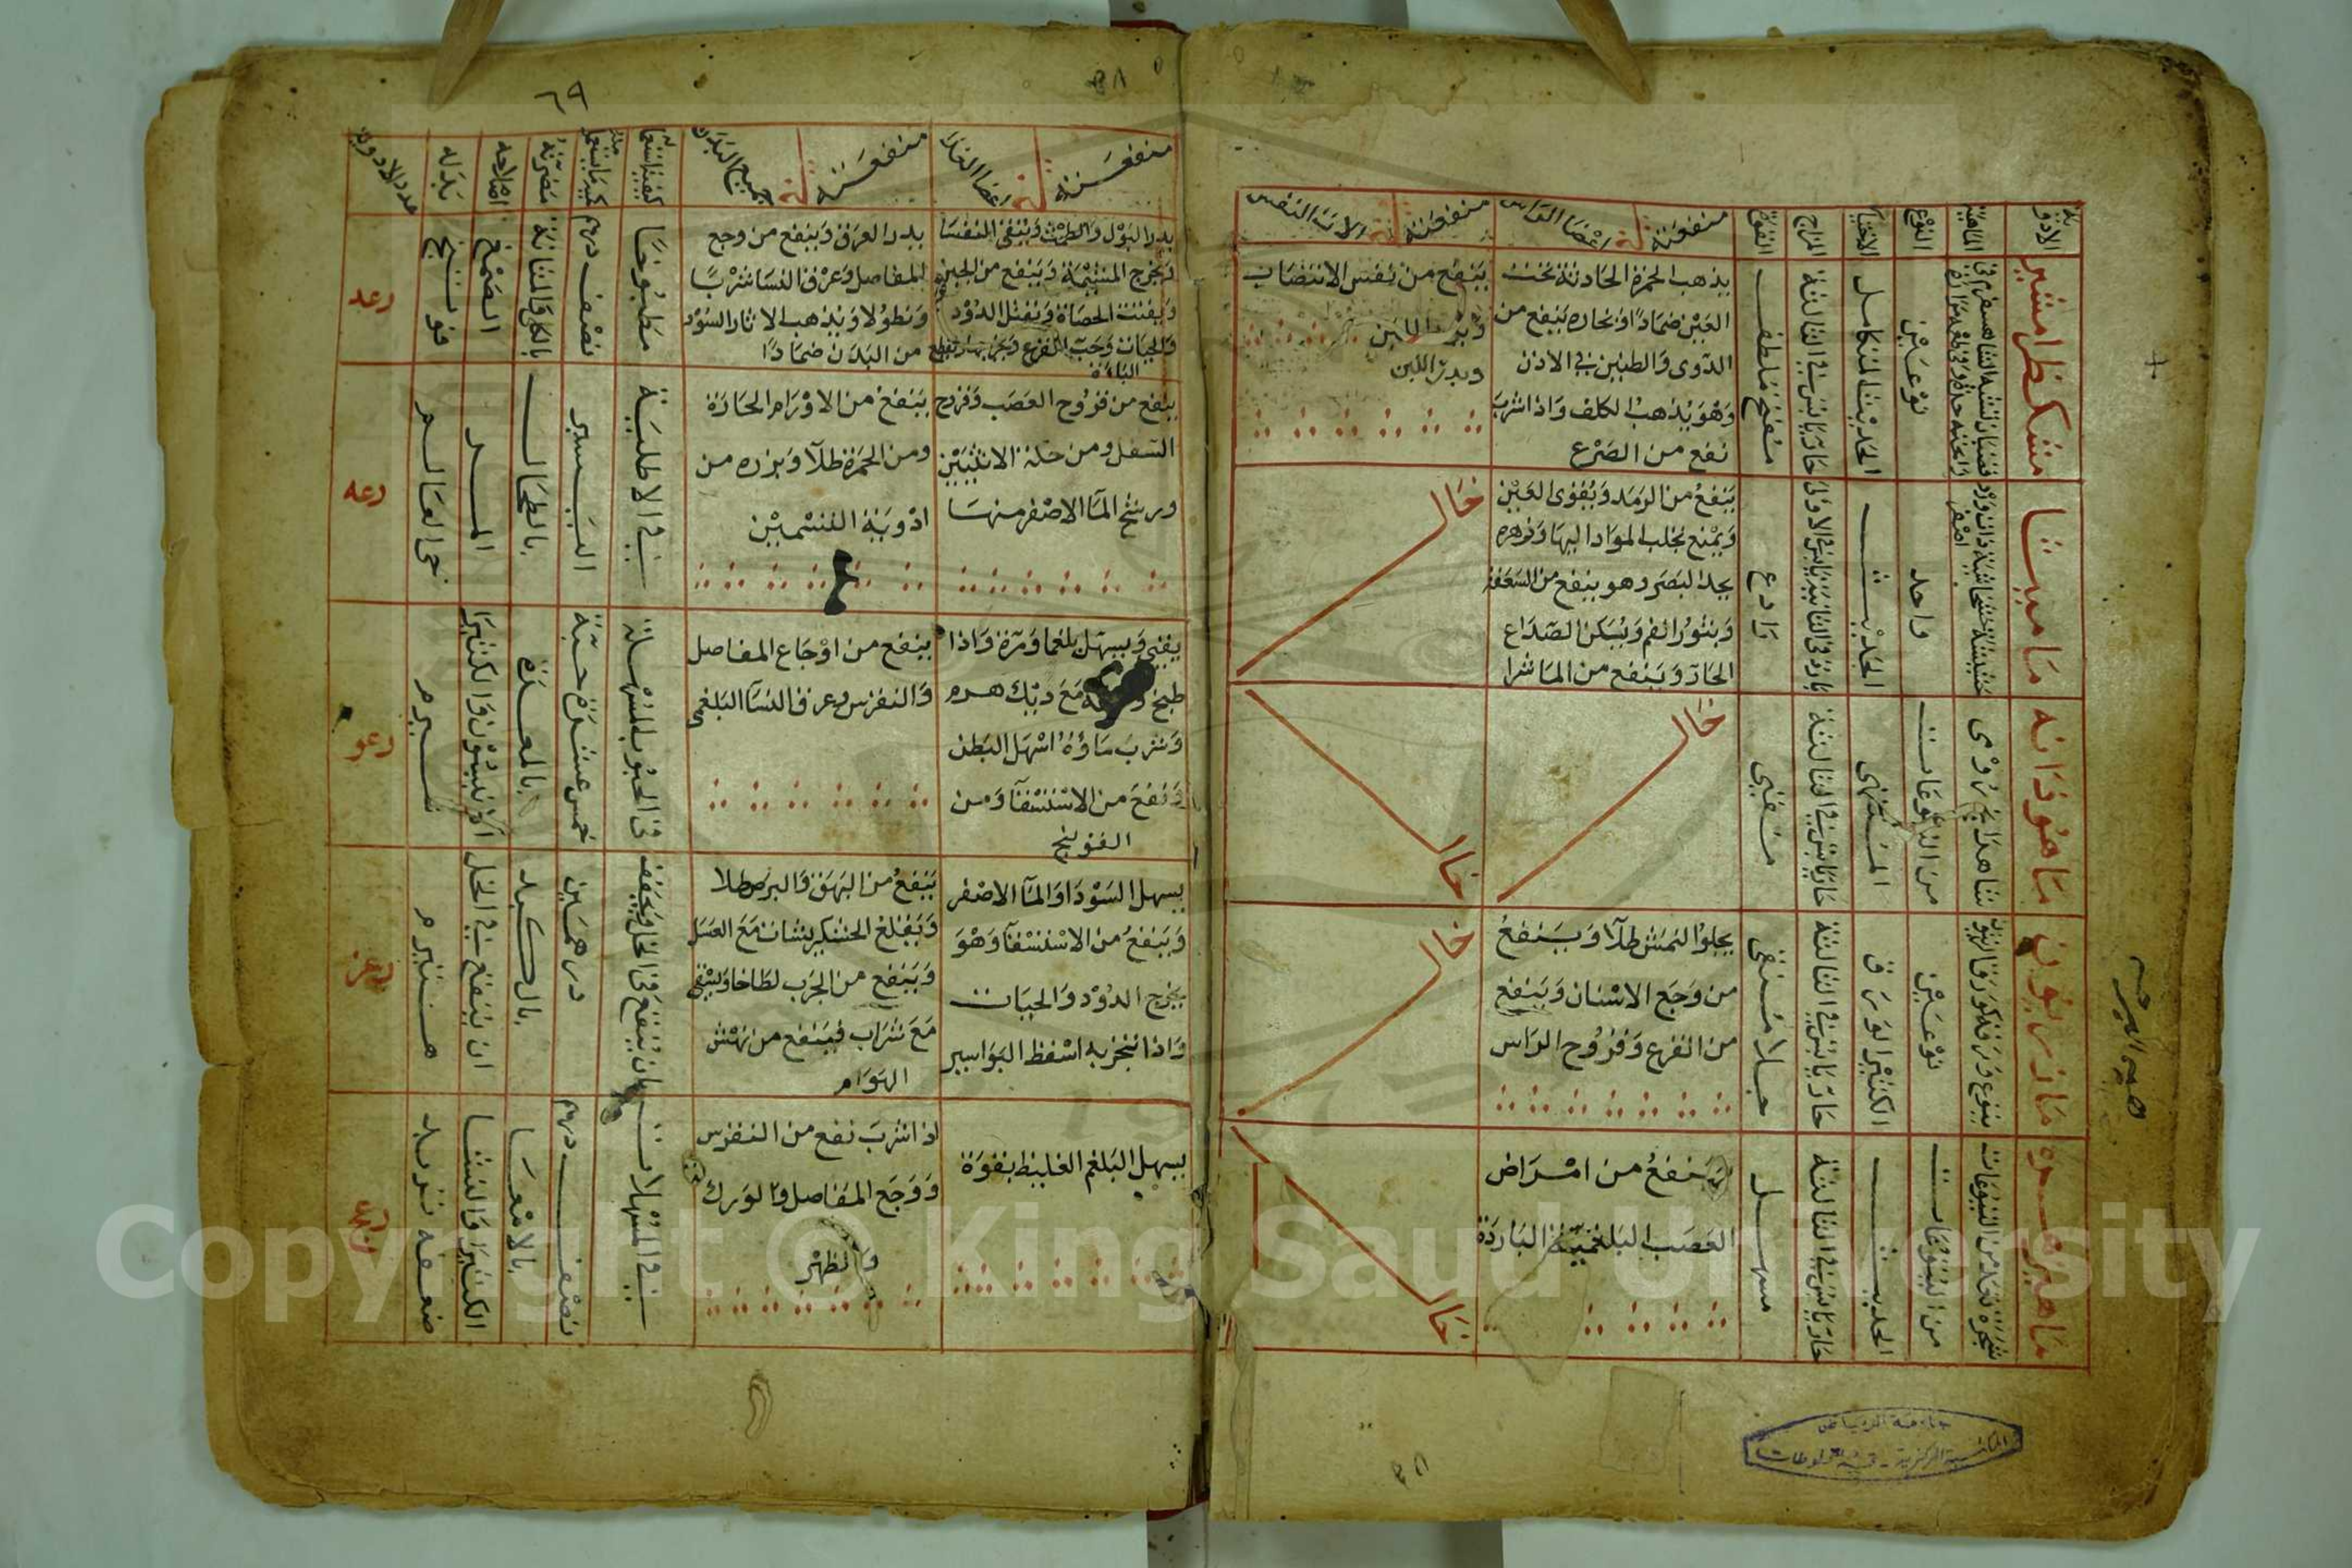 الماهية
النوع
الاختيار
المزاج
القوة
منفعته في اعضا الراس
منفعته في الات التنفس
مشكطرامشير
نوعين
الحديث المتكامل
حار يابس في الثالثة
مفتح ملطف
يذهب الحمرة الحادثة تحت
العين ضمادا وبخاره ينفع من
الدوى والطنين في الاذن
وهو يذهب الكلف واذا شرب
نفع من الصرع
ينفع من نفس الانتصاب
ويدر اللبن
ويدر اللبن
ماميثا
واحد
الحديث
رادع
ينفع من الرمد ويقوى العين
ويمنع تجلب المواد اليها وزهره
يحد البصر وهو ينفع من السعفة
وبثور الفم ويسكن الصداع
الحار وينفع من الماشرا
خال
ماهودانه
من اليتوعات
المنتهى
حار يابس في الثالثة
مقيى
خال
خال
مازريون
نوعين
الكثير الورق
حار يابس في الثالثة
جلا منقى
يجلوا النمش طلا وينفع
من وجع الاسنان وينفع
من القرع وقروح الراس
خال
ماهيزهره
شجره تعد من اليتوعات
من اليتوعات
الحديث
حار يابس في الثالثة
مسهل
ينفع من امراض
العصب البلغمية الباردة
خال
جامعة الرياض
المكتبة المركزية - قسم المخطوطات
٣٨
منفعته في اعضا الغذا
منفعته في جميع البدن
كيفية استعماله
مضرته
اصلاحه
بدله
عدد الادوية
يدر البول والطمث وينقى النفسا
ويخرج المشيمة وينفع من الجبن
ويفتت الحصاة ويقتل الدود
والحيات وحب القرع
يدر العرق وينفع من وجع
المفاصل وعرق النسا شربا
ونطولا ويذهب الاثار السود
من البدن ضمادا
مطبوخا
نصف درهم
بالكلى والمثانة
الصمغ
فوتنج
رعد
ينفع من قروح العصب وقروح
السفل ومن حكة الانثيين
ويرشح الما الاصفر منها
ينفع من الاورام الحارة
ومن الحمرة طلا وبزره من
ادوية التسمين
في الاطلية
اليسير
بالطحال
المر
حى العالم
رعه
يقيى ويسهل بلغما ومرة واذا
طبخ مع ديك هرم
وشرب ماؤه اسهل البطن
ونفع من الاستسقا ومن
القولنج
ينفع من اوجاع المفاصل
والنقرس وعرق النسا البلغمى
في الحبوب المسهلة
خمس عشرة حبة
بالمعدة
الانيسون والكثيرا
شبرم
رعو
يسهل السودا والما الاصفر
وينفع من الاستسقا وهو
يخرج الدود والحيات
واذا تبخر به اسقط البواسير
ينفع من البهق والبرص طلا
ويقلع الخشكريشات مع العسل
وينفع من الجرب لطاخا ويسقى
مع شراب فينفع من نهش
الهوام
بان ينقع في الخل ويجفف
درهمين
بالكبد
ان ينقع في الخل
شبرم
رعز
يسهل البلغم الغليظ بقوة
اذا شرب نفع من النقرس
ووجع المفاصل والورك
والظهر
في المسهلات
نصف درهم
بالامعا
الكثيرا والنشا
ضعفه تربد
رعح